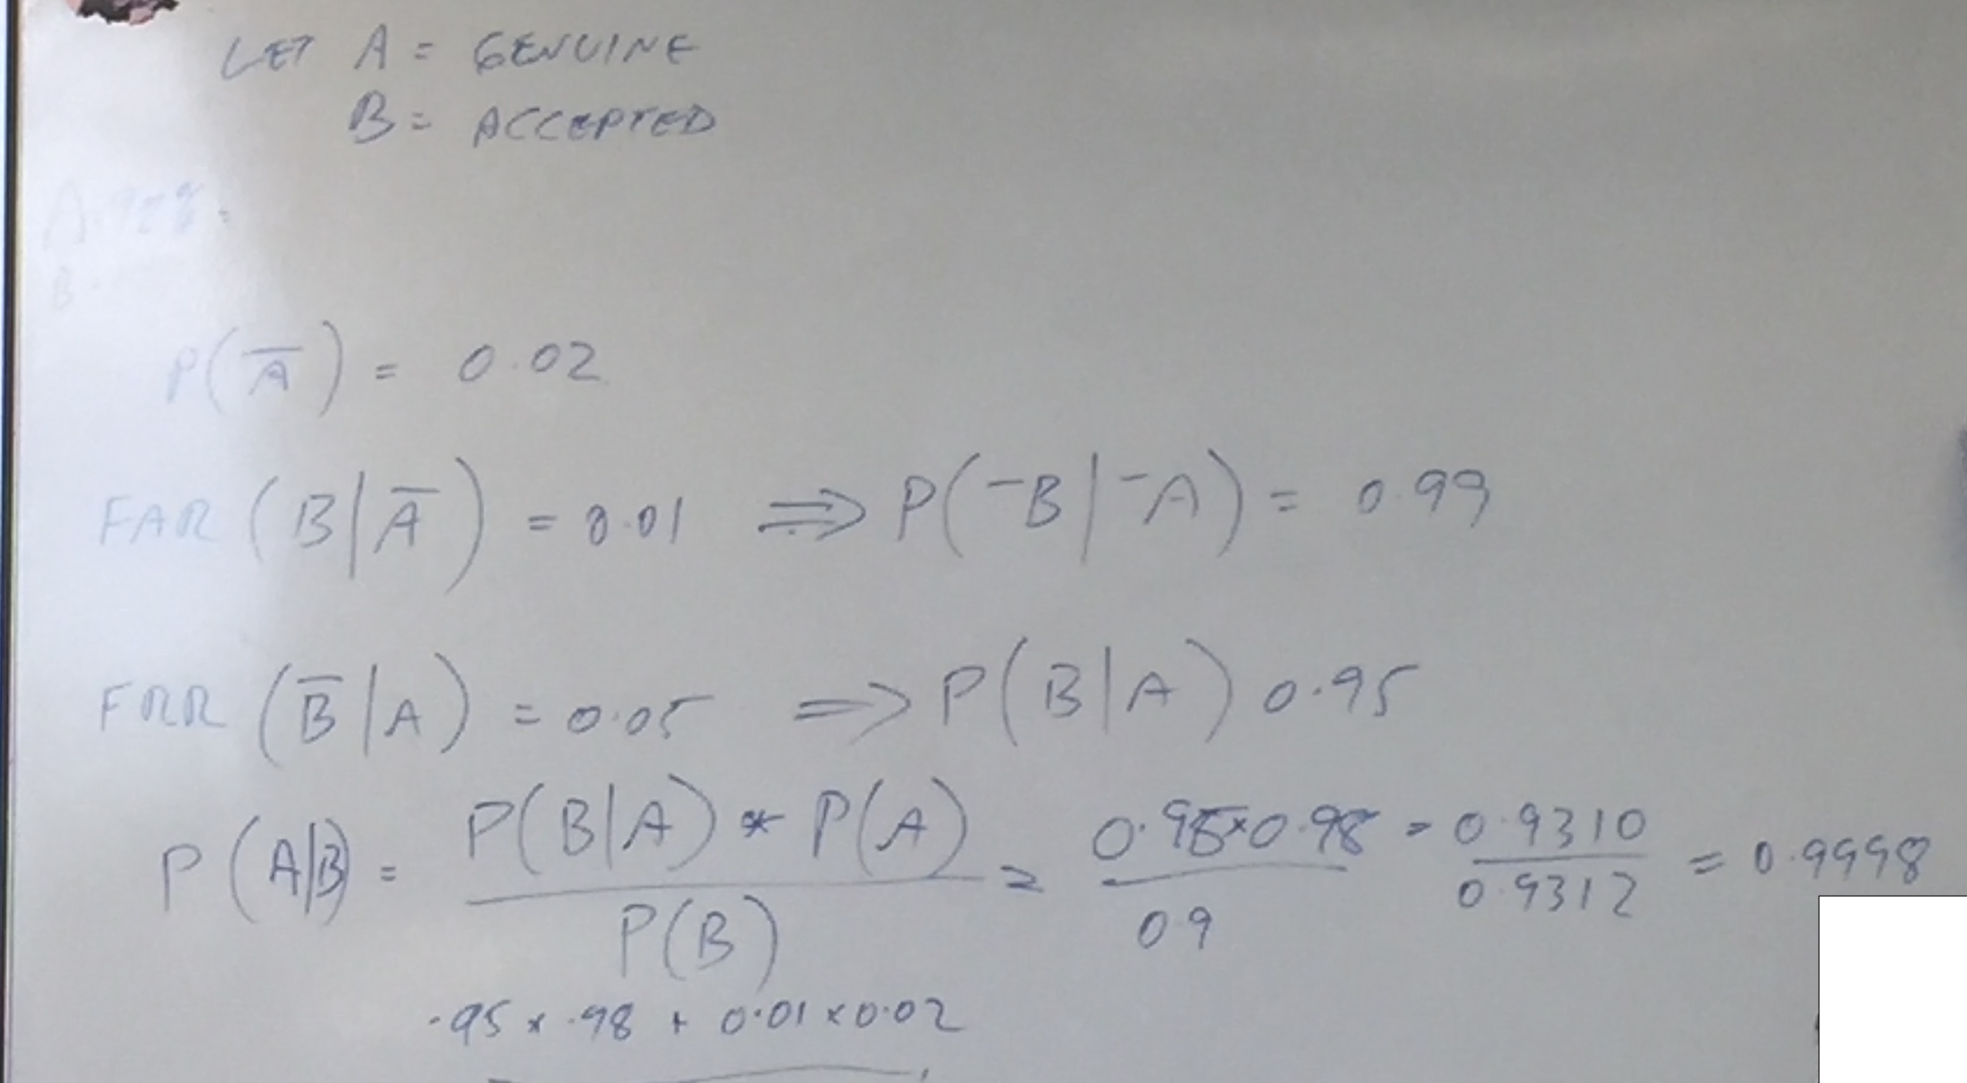 LET A = GENUINE
B = ACCEPTED
P(A̅) = 0.02
FAR (B|A̅) = 0.01 ⇒ P(¯B|¯A) = 0.99
FRR (B̅|A) = 0.05 ⇒ P(B|A) 0.95
P(A|B) = P(B|A) * P(A) / P(B) = 0.95×0.98 / 0.9 = 0.9310 / 0.9312 = 0.9998
.95 × .98 + 0.01 × 0.02